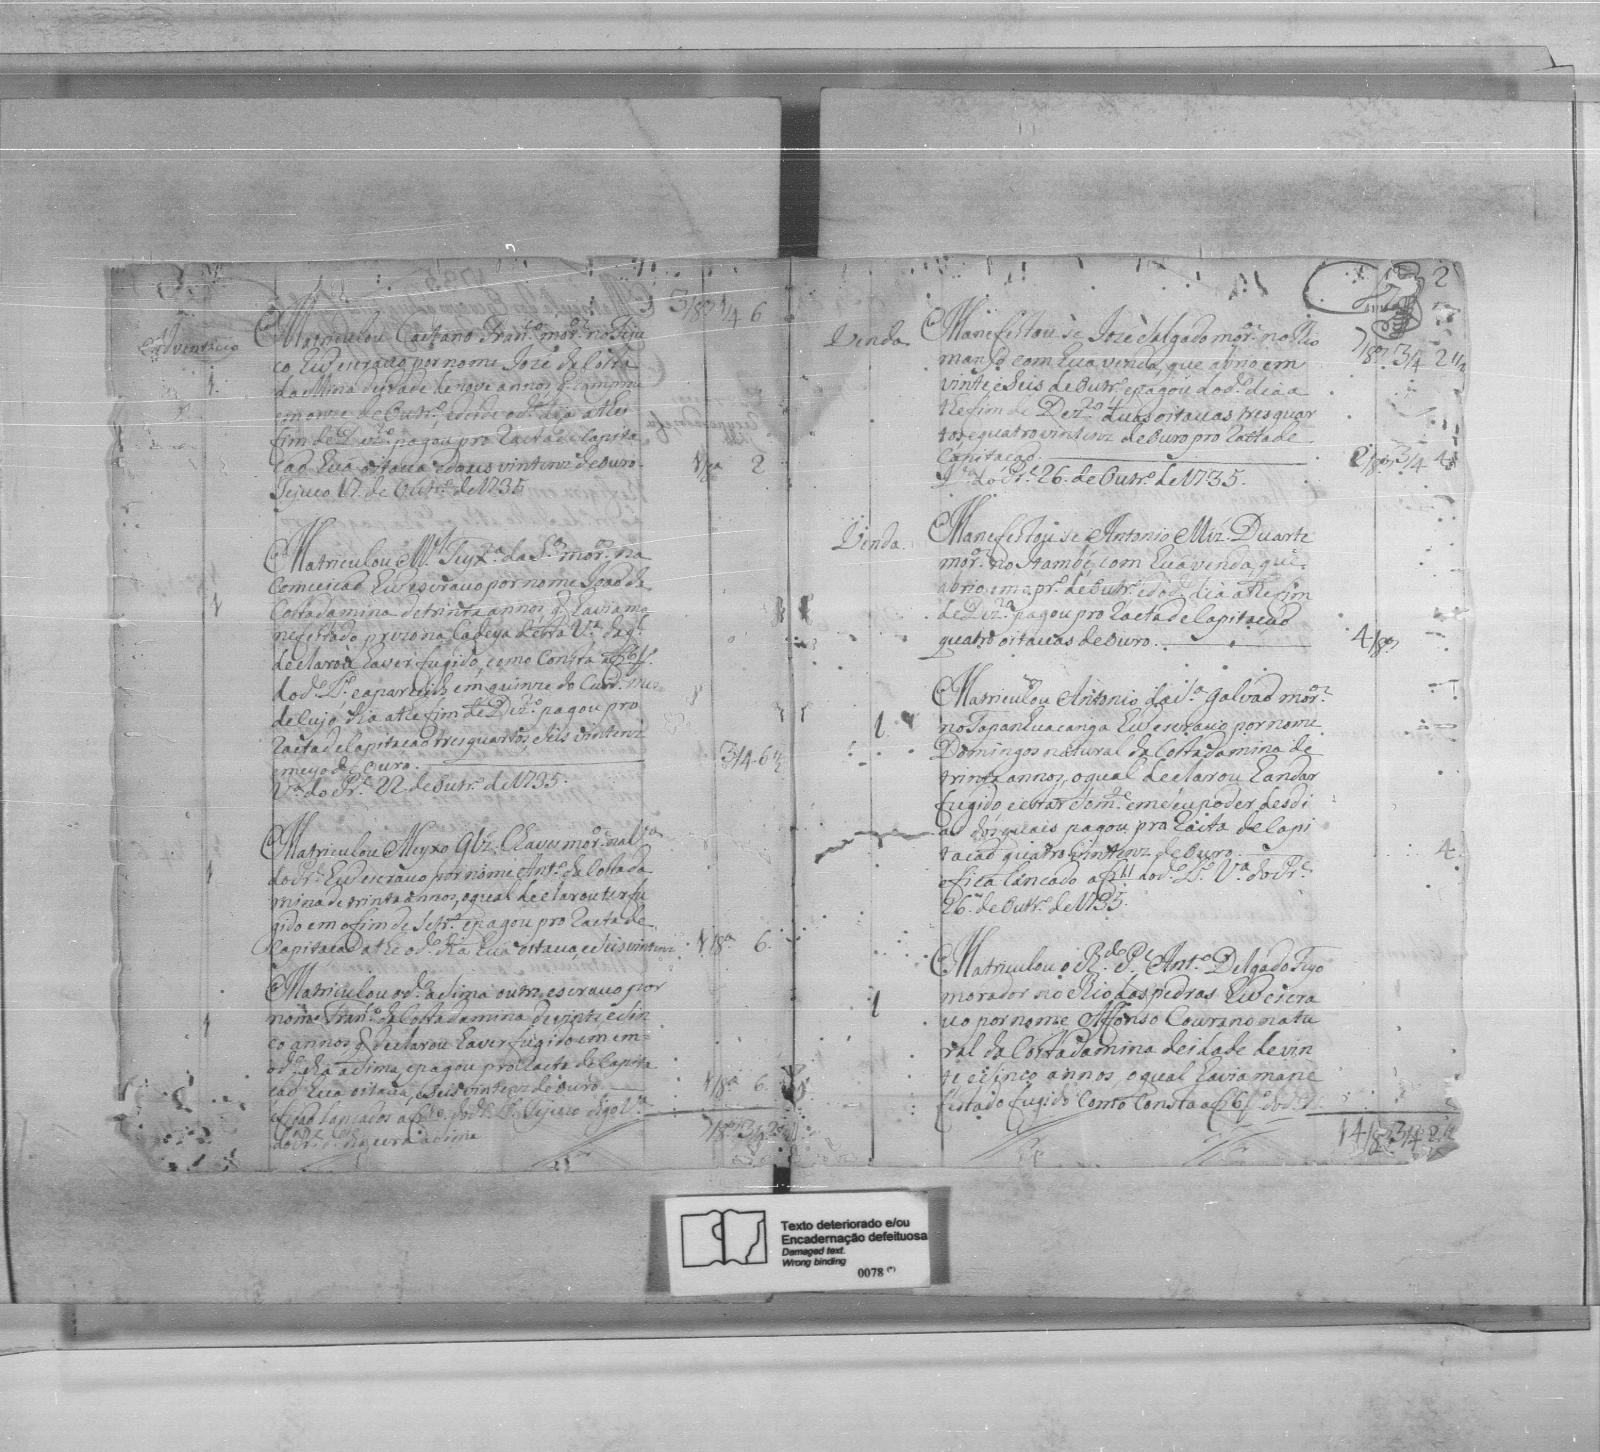 3/8 3/4 6
Matriculou Caetano Fran.co mor.or no Teju
co hu escravo por nome Jozé da Costa
da Mina de idade de nove annos
em onze de Outr.o e desde o d.o dia athe o
fim de Dez.ro pagou pro Racta de Capita
cao huã oitava e dous vintenz de Ouro. 1/8a 2
Tejuco 17 de Outr.o de 1735
Matriculou M.el Teyx.ra da S.a mor.or na
Conceicao hu escravo por nome Joao da
Costa da mina de trinta annos q havia ma
nefestado, prezo na Cadeya desta V.a da q.l
declarou haver fugido, como Consta a f 6
do d.o L.o e apareceu em quinze do
de cujo dia athe fim de Dez.ro pagou pro
Racta de Capitacao tres quartos, e seis vintenz
e meyo de Ouro. 3/4 6 1/2
V.a do Pr.e 22 de Outr.o de 1735.
Matriculou Aleyxo Glz Chaves mor.or na V.a
do Pr.e hu escravo por nome Ant.o da Costa da
mina de trinta annos, o qual declarou ter fu
gido em o fim de Setr.o e pagou pro Racta de
Capitacao athe o d.o dia huã oitava, e seis vintenz 1/8a 6
Matriculou o d.o asima outro escravo por
nome Fran.co da Costa da mina de vinte, e sin
co annos q declarou haver fugido em em
o d.o dia asima, e pagou pro Racta de Capita
cao huã oitava, e seis vintenz de Ouro. 1/8a 6
e ficao lancados a f do d.o L.o Tejuco digo V.a
do Pr.e asima
2
Venda. Manefestou se Jozé Salgado mor.or no Rio 7/8 3/4 2 1/2
com huã venda, que abrio em
vinte e Seis de Outr.o e pagou do d.o dia a
the fim de Dez.ro duas oitavas tres quar
tos, e quatro vintenz de Ouro pro Racta de
Capitacao. 2/8 3/4 4
V.a do Pr.e 26. de Outr.o de 1735.
Venda. Manefestou se Antonio Miz. Duarte
mor.or no Itambé, com huã venda, que
abrio em o pr.o de Outr.o e do d.o dia athe fim
de Dez.ro pagou pro Racta de Capitacao
quatro oitavas de Ouro. 4/8
1 Matriculou Antonio Galvao mor.or
no Tapanhuacanga hu escravo por nome
Domingos natural da Costa da mina de
trinta annos, o qual declarou handar
fugido e estar em seu poder des di
as dos quais pagou pro Racta de Capi
tacao quatro vintenz de Ouro. 4
e fica lancado a f 11 do d.o L.o V.a do Pr.e
26 de Outr.o de 1735.
1 Matriculou o R.do P. Ant.o Delgado Feyo
morador no Rio das pedras hu escra
vo por nome Affonso Courano natu
ral da Costa da mina de idade de vin
te e sinco annos, o qual havia mane
festado fugido Como Consta a f 6 do d.o L.o
14/8 3/4 2 1/2
Texto deteriorado e/ou
Encadernação defeituosa
Damaged text.
Wrong binding
0078 (*)